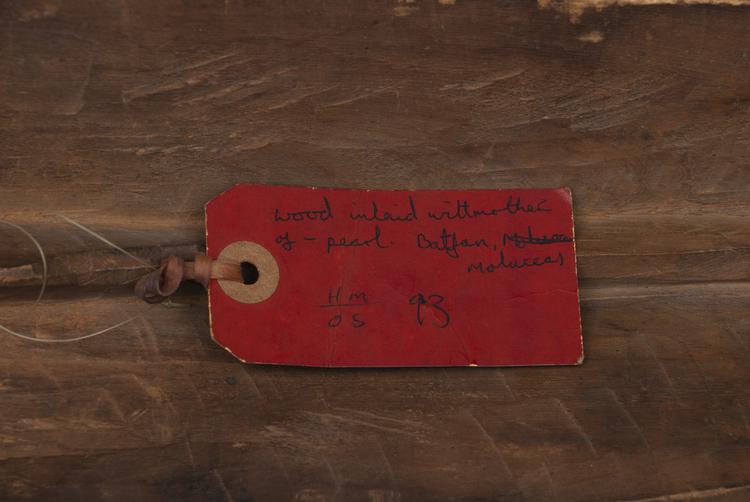 wood inlaid with mother
of - pearl. Batjan,
Moluccas
HM 93
OS